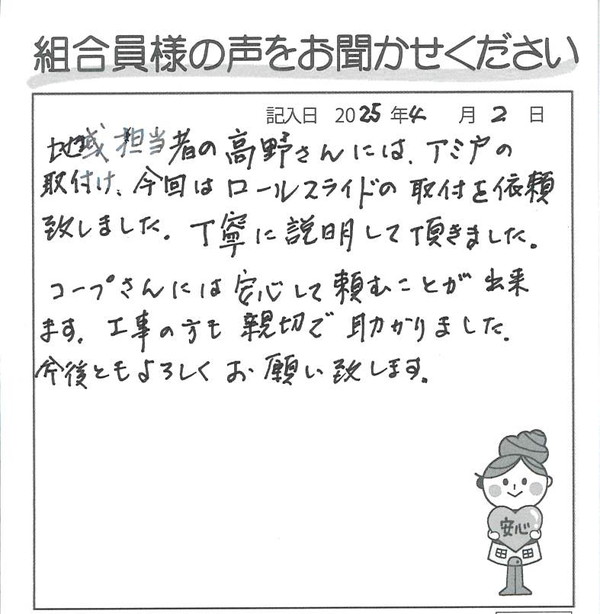 組合員様の声をお聞かせください
記入日 2025年4月2日
地域担当者の高野さんには、アミ戸の
取付け、今回はロールスライドの取付を依頼
致しました。丁寧に説明して頂きました。
コープさんには安心して頼むことが出来
ます。工事の方も親切で助かりました。
今後ともよろしくお願い致します。
安心